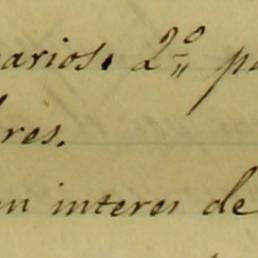 arios. 2º p
res.
en interes de